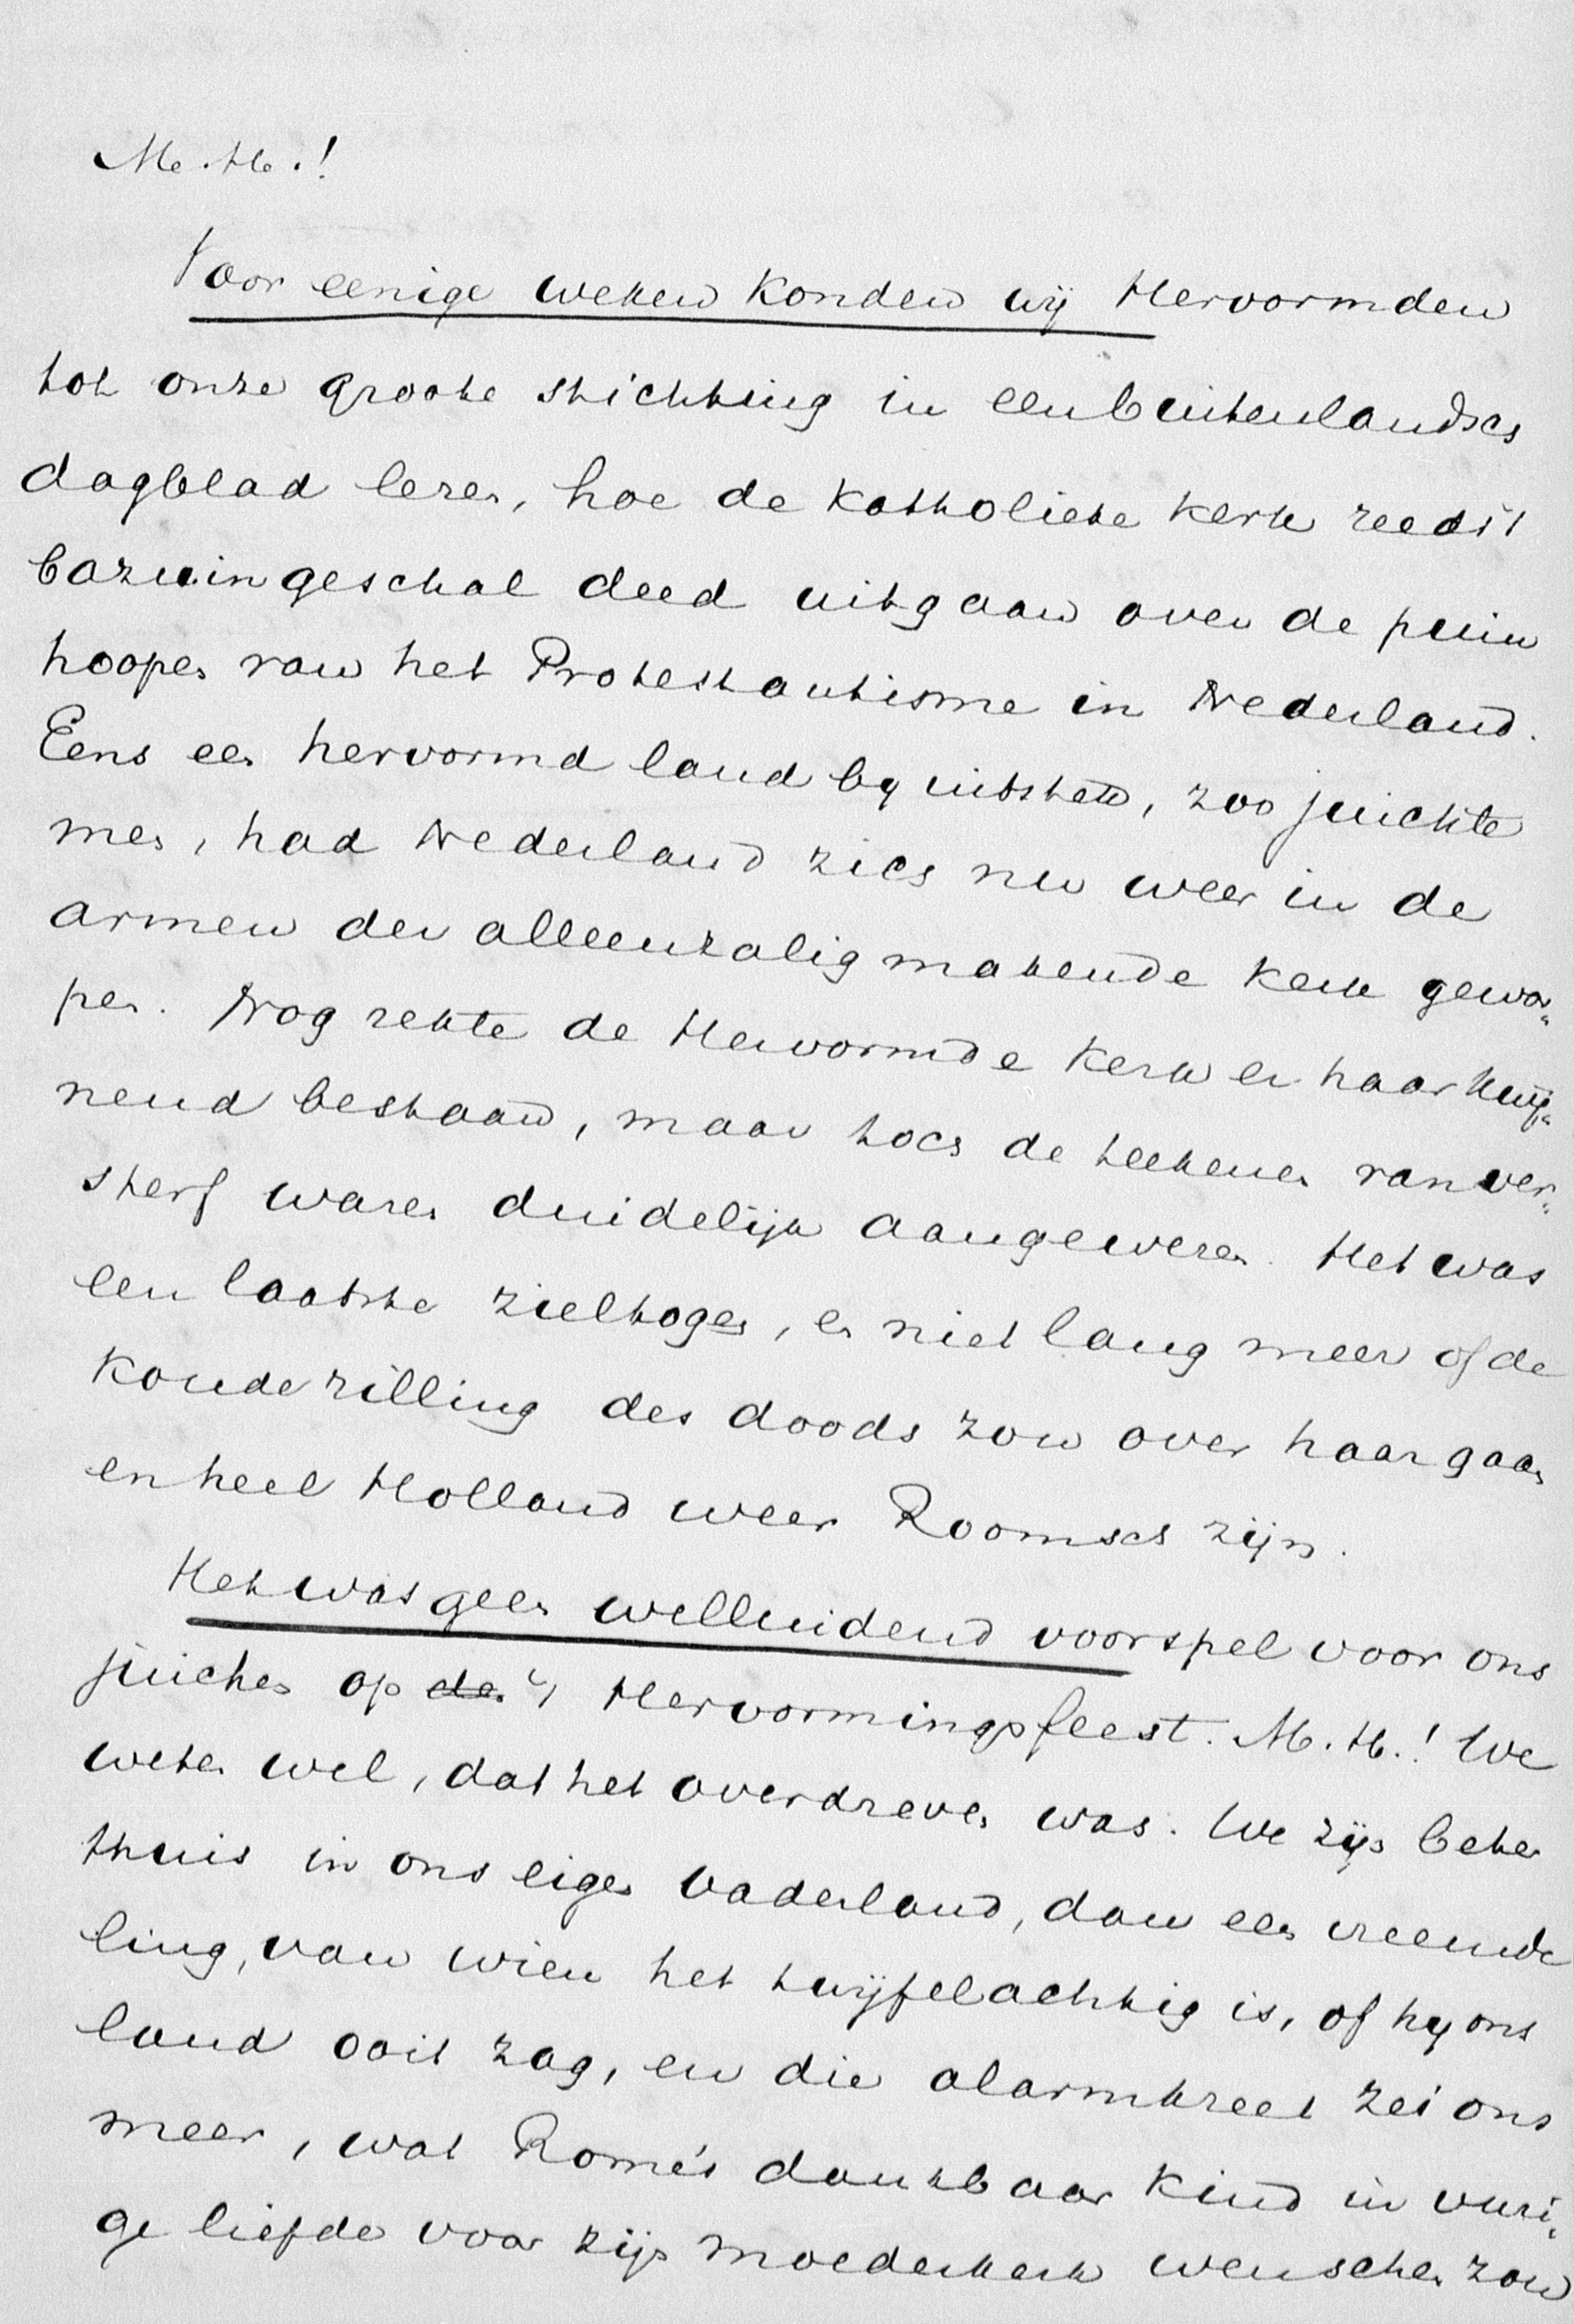 M. H.!
Voor eenige weken konden wij Hervormden
tot onze groote stichting in een buitenlandsch
dagblad lezen, hoe de Katholieke Kerk reeds 't
bazuingeschal deed uitgaan over de puin
hoopen van het Protestantisme in Nederland.
Eens een hervormd land bij uitstek, zoo juichte
men, had Nederland zich nu weer in de
armen der alleenzaligmakende Kerk gewor„
pen. Nog rekte de Hervormde Kerk er haar kwij„
nend bestaan, maar toch de teekenen van ver„
sterf waren duidelijk aangewezen. Het was
een laatste zieltogen, en niet lang meer of de
koude rilling des doods zou over haar gaan
en heel Holland weer Roomsch zijn.
Het was geen welluidend voorspel voor ons
juichen op den 't Hervormingsfeest. M. H.! We
weten wel, dat het overdreven was. We zijn beter
thuis in ons eigen vaderland, dan een vreemde
ling, van wien het twijfelachtig is, of hij ons
land ooit zag, en die alarmkreet zei ons
meer, wat Rome's dankbaar kind in vuri„
ge liefde voor zijn moederkerk wenschen zou